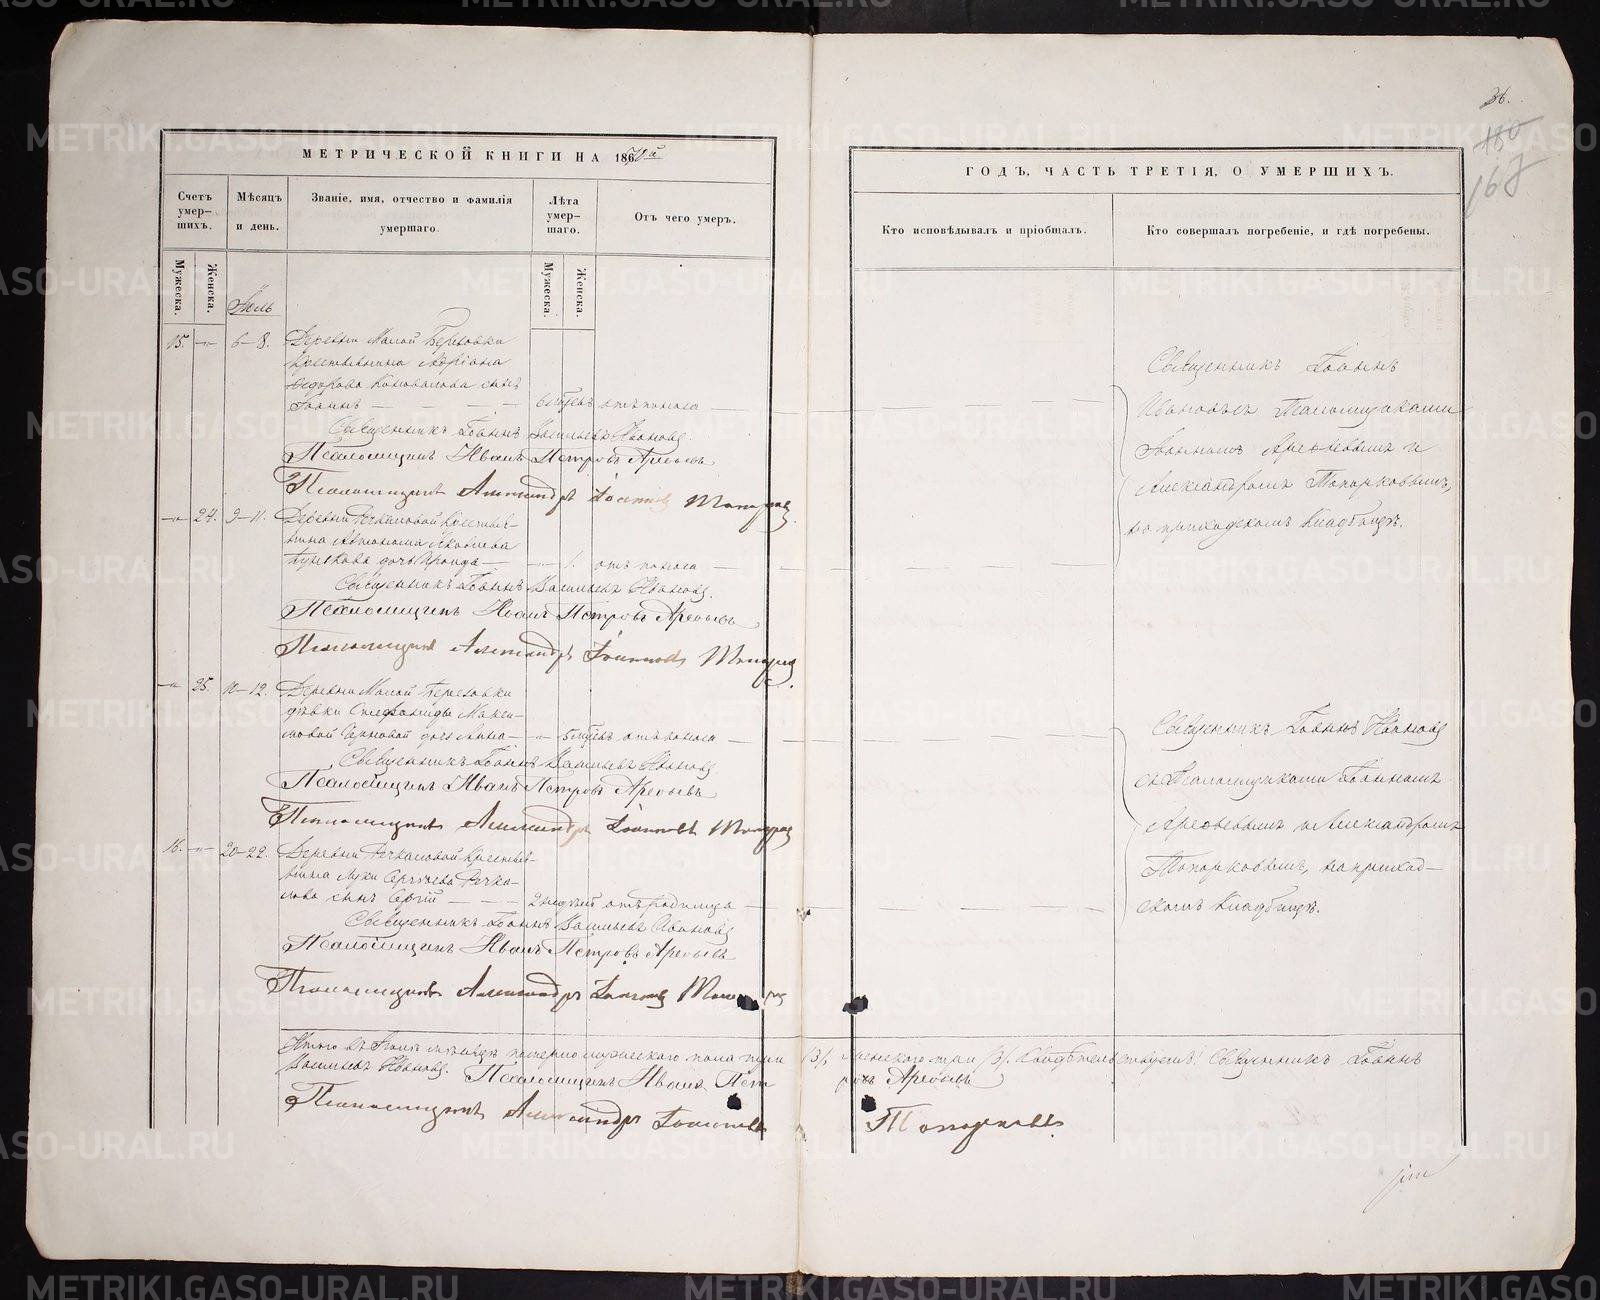 36.
150
167
МЕТРИЧЕСКОЙ КНИГИ НА 1870й
ГОДЪ, ЧАСТЬ ТРЕТІЯ, О УМЕРШИХЪ.
Счетъ умер-шихъ.
Мѣсяцъ и день.
Званіе, имя, отчество и фамилія умершаго.
Лѣта умер-шаго.
Отъ чего умеръ.
Кто исповѣдывалъ и пріобщалъ.
Кто совершалъ погребеніе, и гдѣ погребены.
Мужеска.
Женска.
Мужеска.
Женска.
Іюль
15. —"— 6—8. Деревни Малой Березовки
крестьянина Адріана
Ѳедорова Коновалова сынъ
Іоаннъ — — — — отъ поноса —
Священникъ Іоаннъ Васильевъ Ивановъ.
Псаломщикъ Иванъ Петровъ Арефьевъ
Псаломщикъ Александръ Іоанновъ Топорковъ
Священникъ Іоаннъ
Ивановъ съ Псаломщиками
Іоанномъ Арефьевымъ и
Александромъ Топорковымъ,
на приходскомъ кладбищѣ.
—"— 24. 9—11. Деревни Речкаловой крестья-
нина Автонома Яковлева
дочь Ираида — —"— 1. отъ поноса —
Священникъ Іоаннъ Васильевъ Ивановъ.
Псаломщикъ Иванъ Петровъ Арефьевъ
Псаломщикъ Александръ Іоанновъ Топорковъ
—"— 25. 10—12. Деревни Малой Березовки
дѣвки Стефаниды Макси-
мовой дочь Анна — —"— отъ поноса —
Священникъ Іоаннъ Васильевъ Ивановъ
Псаломщикъ Иванъ Петровъ Арефьевъ
Псаломщикъ Александръ Іоанновъ Топорковъ
Священникъ Іоаннъ Ивановъ
съ Псаломщиками Іоанномъ
Арефьевымъ и Александромъ
Топорковымъ, на приход-
скомъ кладбищѣ.
16. —"— 20—22. Деревни Речкаловой крестья-
нина Луки Сергѣева Речка-
лова сынъ Сергій — — — 2 недѣль отъ родимца —
Священникъ Іоаннъ Васильевъ Ивановъ
Псаломщикъ Иванъ Петровъ Арефьевъ
Псаломщикъ Александръ Іоанновъ Топорковъ
Итого въ Іюлѣ мѣсяцѣ померло мужескаго пола три /3/, женскаго три /3/. Свидѣтельствуемъ: Священникъ Іоаннъ
Васильевъ Ивановъ. Псаломщикъ Иванъ Петровъ Арефьевъ
Псаломщикъ Александръ Іоанновъ Топорковъ
METRIKI.GASO-URAL.RU